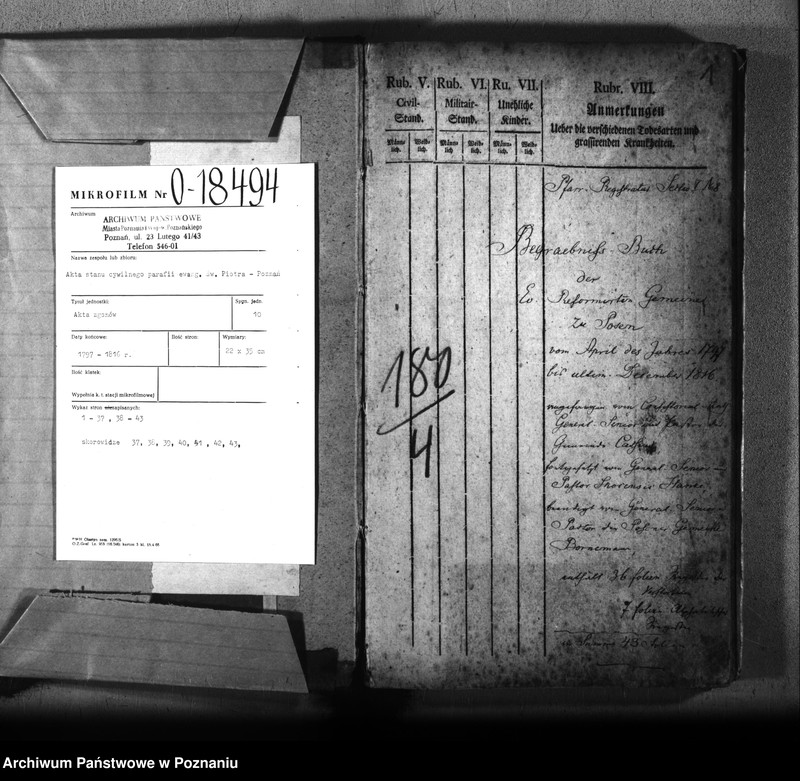 MIKROFILM Nr 0-18494
Archiwum
ARCHIWUM PAŃSTWOWE
Miasta Poznania i Woj-w Poznańskiego
Poznań, ul. 23 Lutego 41/43
Telefon 546-01
Nazwa zespołu lub zbioru:
Akta stanu cywilnego parafii ewang. św. Piotra - Poznań
Tytuł jednostki:
Sygn. jedn.
Akta zgonów
10
Daty końcowe:
Ilość stron:
Wymiary:
1797 - 1816 r.
22 x 35 cm
Ilość klatek:
Wypełnia k. t. stacji mikrofilmowej
Wykaz stron niezapisanych:
1 - 37, 38 - 43
skorowidze 37, 38, 39, 40, 41, 42, 43,
Rub. V.
Civil-
Stand.
Männ-
lich.
Weib-
lich.
Rub. VI.
Militair-
Stand.
Männ-
lich
Weib-
lich.
Ru. VII.
Unehliche
Kinder.
Männ-
lich.
Weib-
lich.
Rubr. VIII.
Anmerkungen
Ueber die verschiedenen Todesarten und
grassirenden Krankheiten.
1
Pfarr. Registratur
Begraebniss-Buch
der
Ev. Reformirten Gemeine
zu Posen
vom April des Jahres 1797
bis ultem. December 1816
angefangen vom
General-Senior und Pastor
Gemeinde
fortgesetzt von General-Senior
Pastor
beendigt von General-Senior
Pastor der Posner Gemeinde
Bornemann
enthält 36 folien
7 folien
in Summa 43
180
4
Archiwum Państwowe w Poznaniu